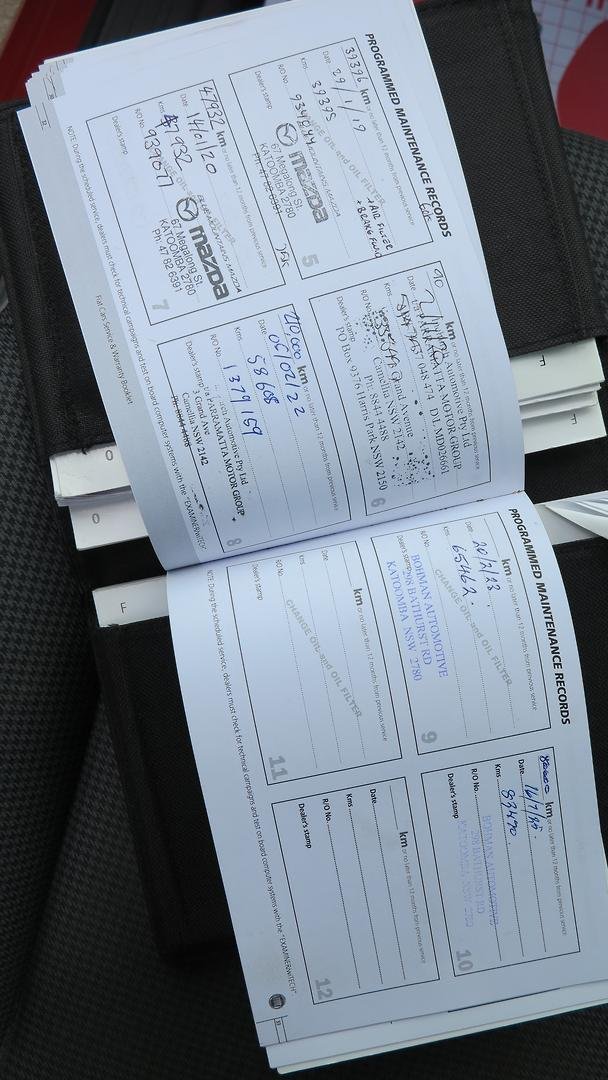 PROGRAMMED MAINTENANCE RECORDS
39396 km or no later than 12 months from previous service
Date 29/1/19
Kms 39395
R/O No.
Dealer's stamp
CHANGE OIL and OIL FILTER
+ AIR FILTER
+ BRAKE FLUID
mazda
67 Megalong St.
KATOOMBA 2780
Ph: 47 82 6391
5
km or no later than 12 months from previous service
Automotive Pty Ltd
PARRAMATTA MOTOR GROUP
Grand Avenue
Camellia NSW 2142
Ph: 8841 4488
PO Box 9376 Harris Park NSW 2150
Dealer's stamp
6
47932 km or no later than 12 months from previous service
Date 14/01/20
Kms 47932
R/O No.
Dealer's stamp
CHANGE OIL and OIL FILTER
mazda
67 Megalong St.
KATOOMBA 2780
Ph: 47 82 6391
7
km or no later than 12 months from previous service
Date 06/02/22
Kms 58608
R/O No. 1329159
Dealer's stamp
Automotive Pty Ltd
t/a PARRAMATTA MOTOR GROUP
3 Grand Ave
Camellia NSW 2142
Ph: 8844 4488
8
NOTE: During the scheduled service, dealers must check for technical campaigns and test on board computer systems with the "EXAMINER/wiTECH"
Fiat Cars Service & Warranty Booklet
PROGRAMMED MAINTENANCE RECORDS
km or no later than 12 months from previous service
Date 20/2/23
Kms 65462
R/O No.
Dealer's stamp
CHANGE OIL and OIL FILTER
BOHMAN AUTOMOTIVE
298 BATHURST RD
KATOOMBA NSW 2780
9
80000 km or no later than 12 months from previous service
Date 16/7/25
Kms 83490
R/O No.
Dealer's stamp
BOHMAN AUTOMOTIVE
298 BATHURST RD
KATOOMBA NSW 2780
10
km or no later than 12 months from previous service
R/O No.
Dealer's stamp
CHANGE OIL and OIL FILTER
11
km or no later than 12 months from previous service
Date
Kms
R/O No.
Dealer's stamp
12
NOTE: During the scheduled service, dealers must check for technical campaigns and test on board computer systems with the "EXAMINER/wiTECH"